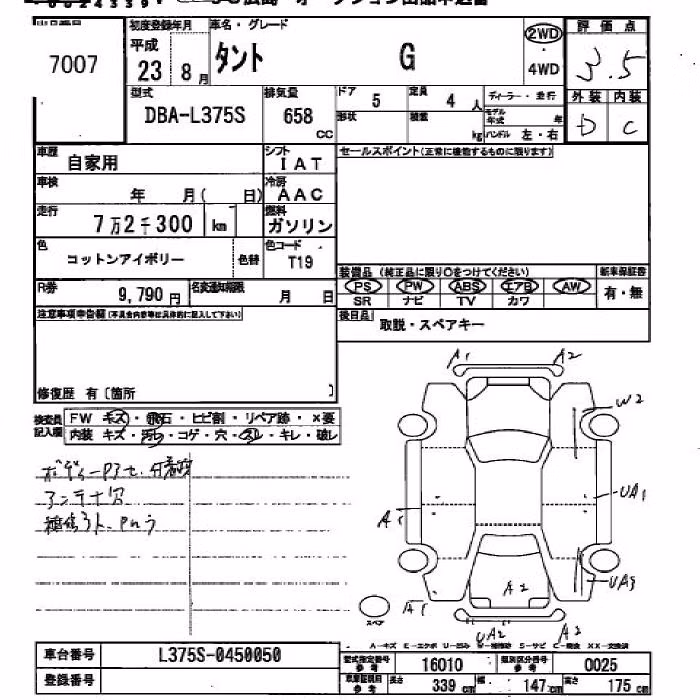 7007
初度登録年月
平成
23 8月
車名・グレード
タント G
2WD
4WD
評価点
3.5
外装 内装
D C
型式
DBA-L375S
排気量
658
cc
ドア 5
定員 4人
形状
積載 kg
ディーラー・並行
モデル年式 年
ハンドル 左・右
車歴
自家用
シフト
IAT
車検
年 月( 日)
冷房
AAC
走行
7万2千300 km
燃料
ガソリン
色
コットンアイボリー
色替
色コード
T19
R券
9,790円
名変通知期限
月 日
セールスポイント(正常に機能するものに限ります)
装備品(純正品に限り○をつけてください)
新車保証書
PS PW ABS エアB AW
有・無
SR ナビ TV カワ
後日品
取説・スペアキー
注意事項申告欄(不具合内容等は具体的に記入して下さい)
修復歴 有〔箇所 〕
検査員記入欄
FW キズ・飛石・ヒビ割・リペア跡・×要
内装 キズ・汚れ・コゲ・穴・スレ・キレ・破レ
アンテナ穴
A1 A2
W2
UA1
A1
UA3
A2
A1
スペア
UA2 A2
車台番号
L375S-0450050
登録番号
型式指定番号
参考
16010
類別区分番号
参考
0025
車庫証明用
参考
長さ 339cm
幅 147cm
高さ 175cm